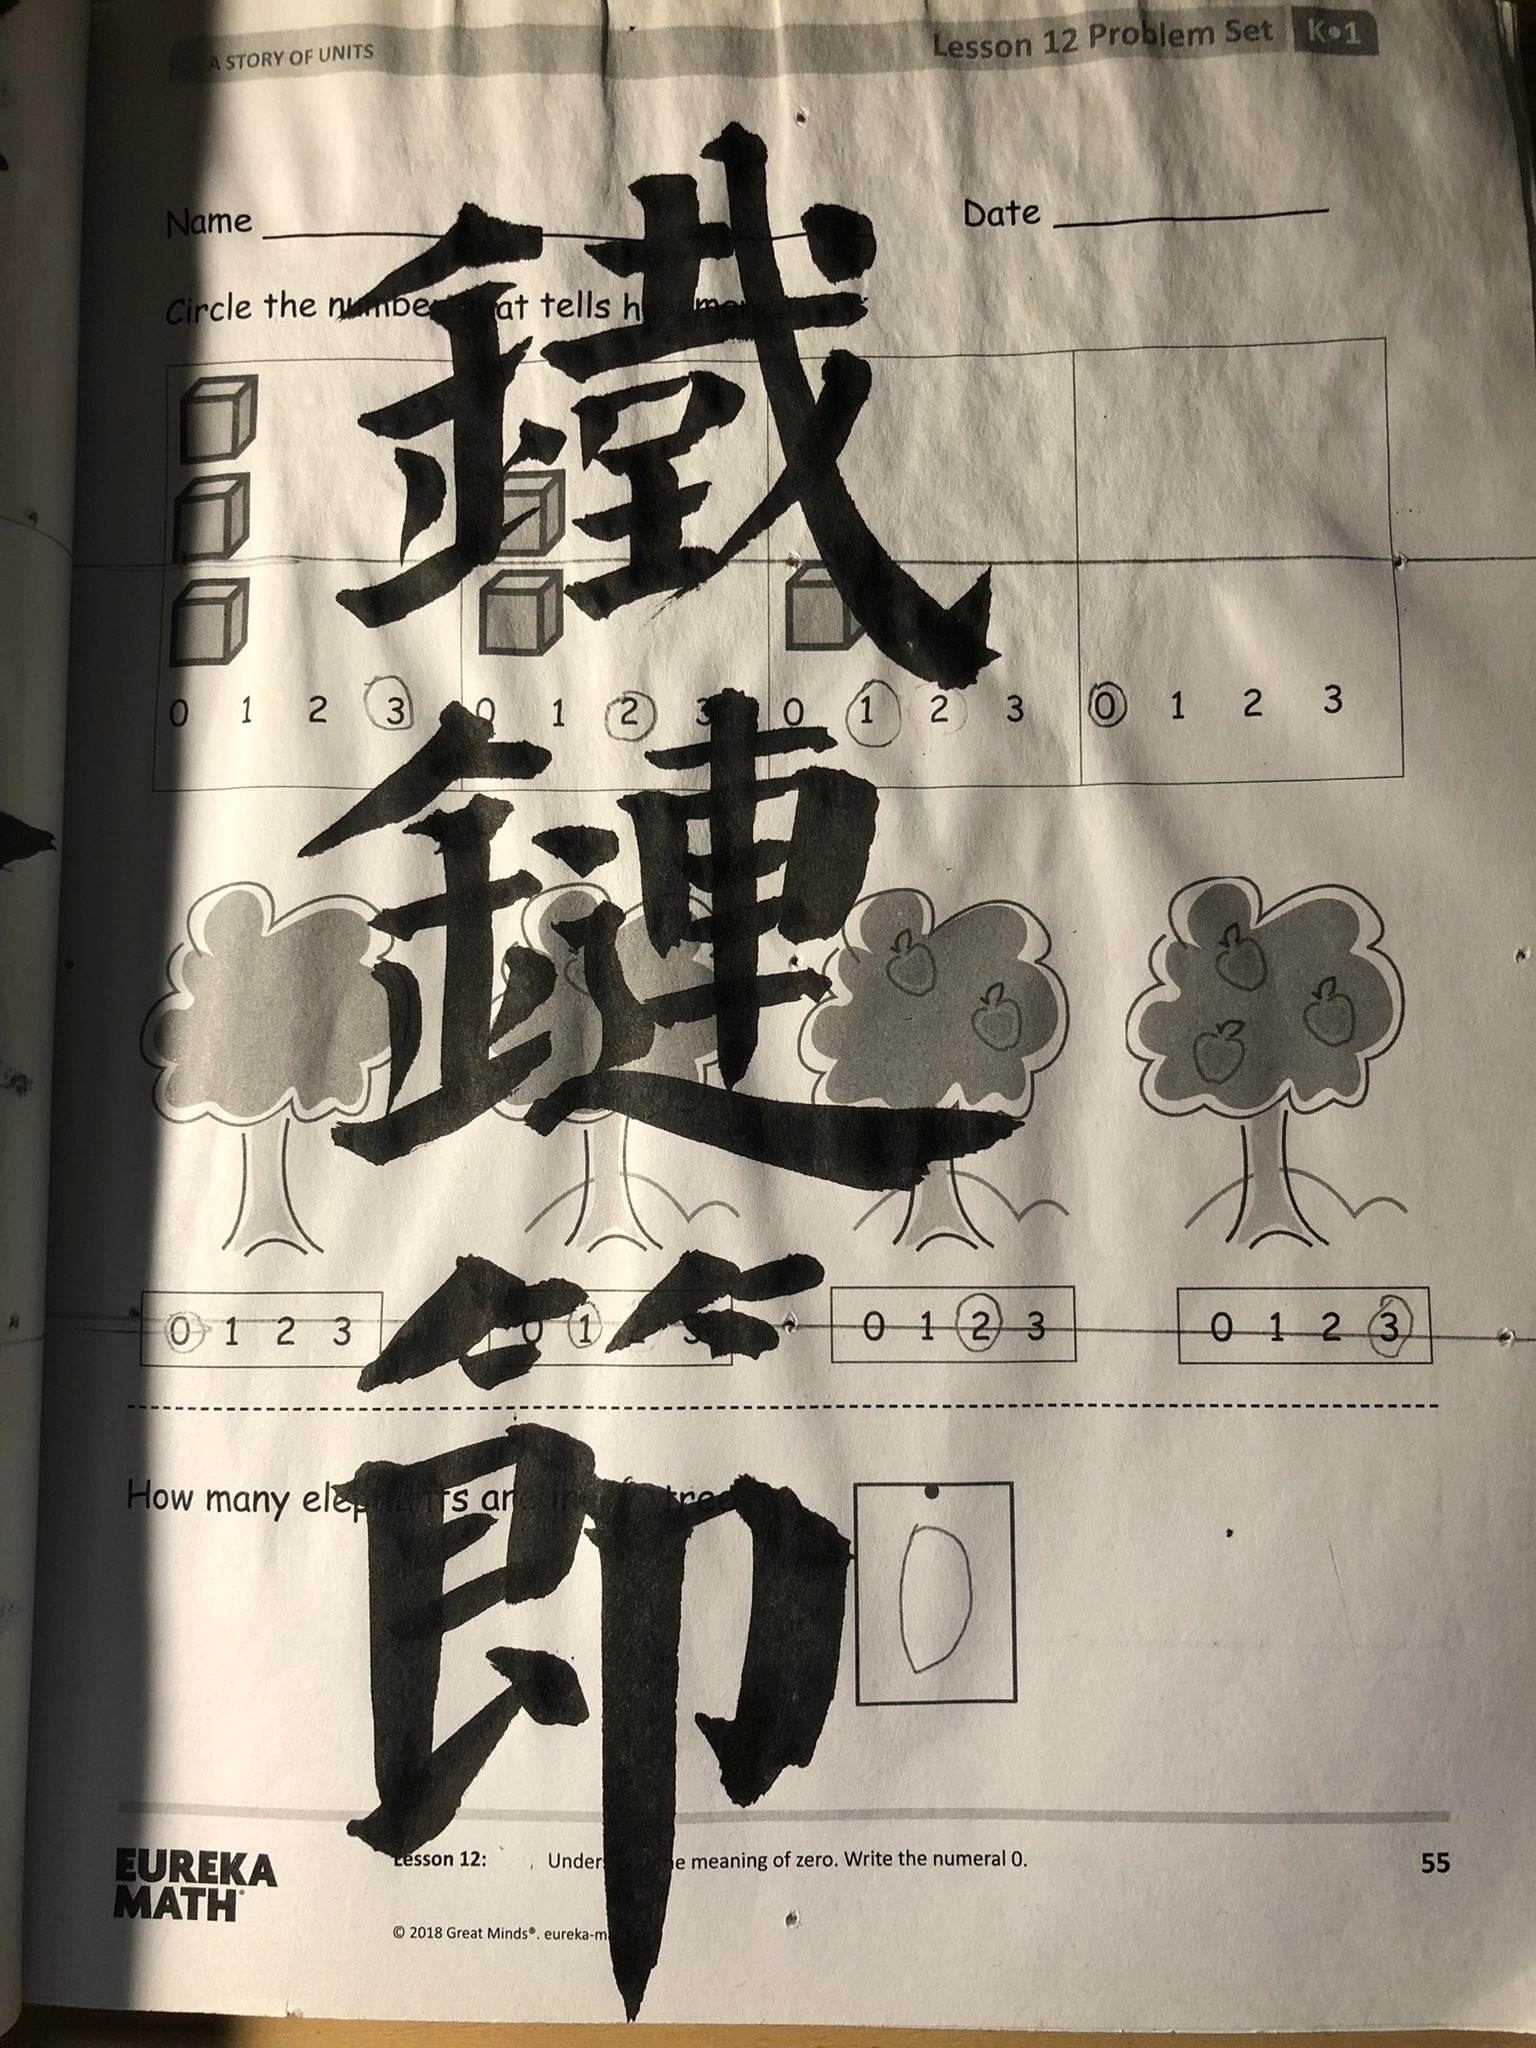 A STORY OF UNITS
Lesson 12 Problem Set K•1
Name Date
Circle the number that tells how many
鐵
鏈
節
0 1 2 3 0 1 2 3 0 1 2 3 0 1 2 3
0 1 2 3 0 1 3 0 1 2 3 0 1 2 3
How many elephants are in tree
0
EUREKA
MATH
Lesson 12: Understand the meaning of zero. Write the numeral 0.
55
© 2018 Great Minds®. eureka-m